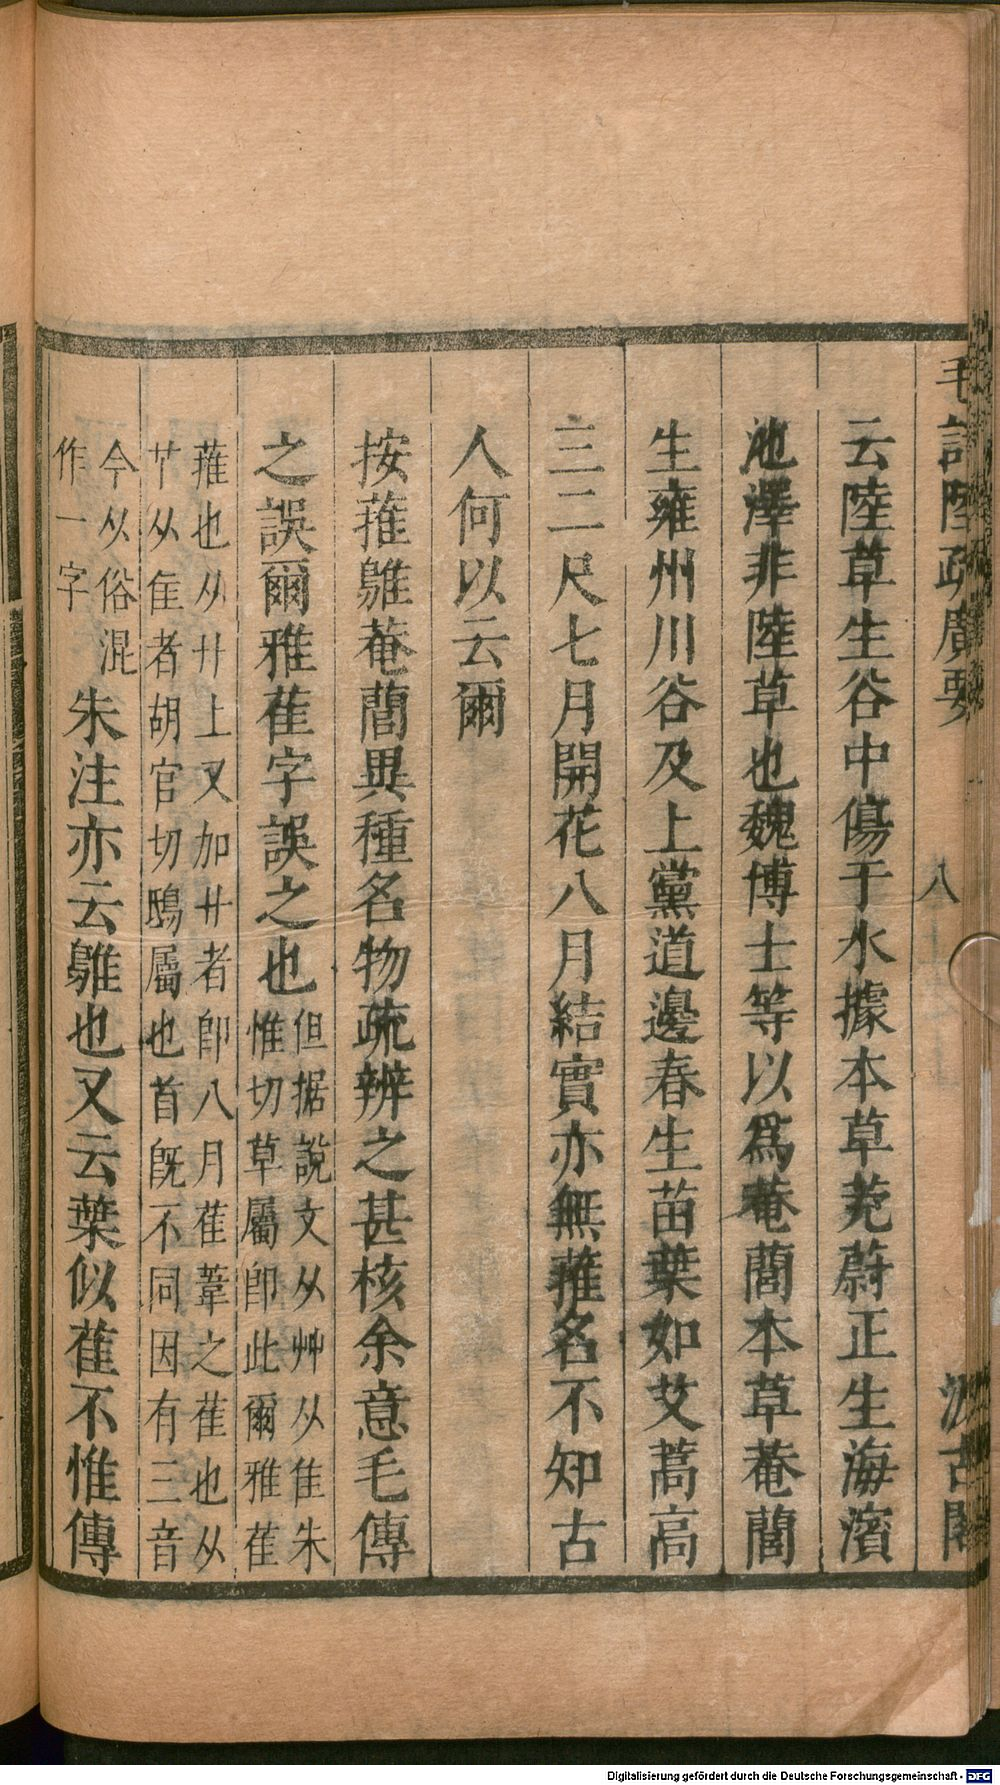 毛詩陸疏廣要
八
汲古閣
云陸草生谷中傷于水據本草茺蔚正生海濱
池澤非陸草也魏博士等以爲菴䕡本草菴䕡
生雍州川谷及上黨道邊春生苗葉如艾蒿高
三二尺七月開花八月結實亦無蓷名不知古
人何以云爾
按蓷鵻菴䕡異種名物疏辨之甚核余意毛傳
之誤爾雅萑字誤之也
但据說文从艸从隹朱
惟切草屬卽此爾雅萑
蓷也从廾上又加廾者卽八月萑葦之萑也从
𦫳从隹者胡官切鴟屬也首旣不同因有三音
今从俗混
作一字
朱注亦云鵻也又云葉似萑不惟傳
Digitalisierung gefördert durch die Deutsche Forschungsgemeinschaft - DFG